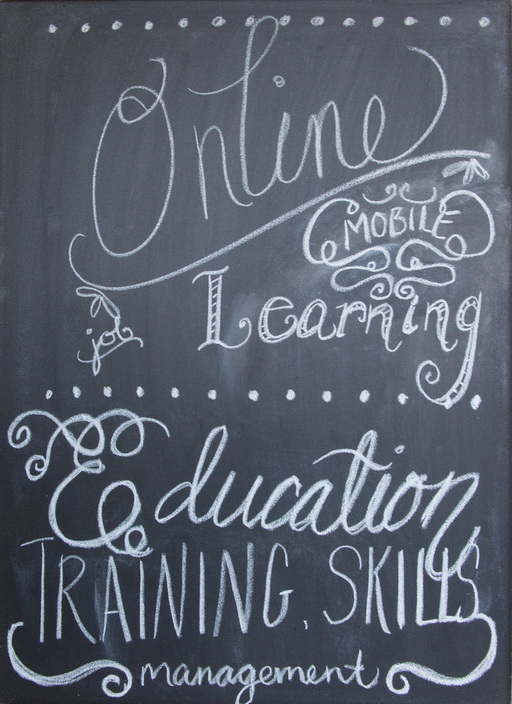 Online
MOBILE
job
Learning
Education
TRAINING, SKILLS
management